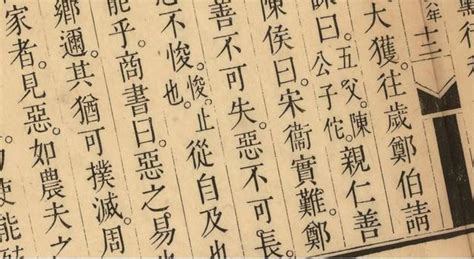 年 十三
大獲。往歲鄭伯請
曰。五父。陳公子佗。親仁善
陳侯曰。宋衞實難。鄭
善不可失。惡不可長。
不悛。悛。止也。從自及也
能乎。商書曰。惡之易也
鄉邇。其猶可撲滅。周
家者。見惡。如農夫之
使能